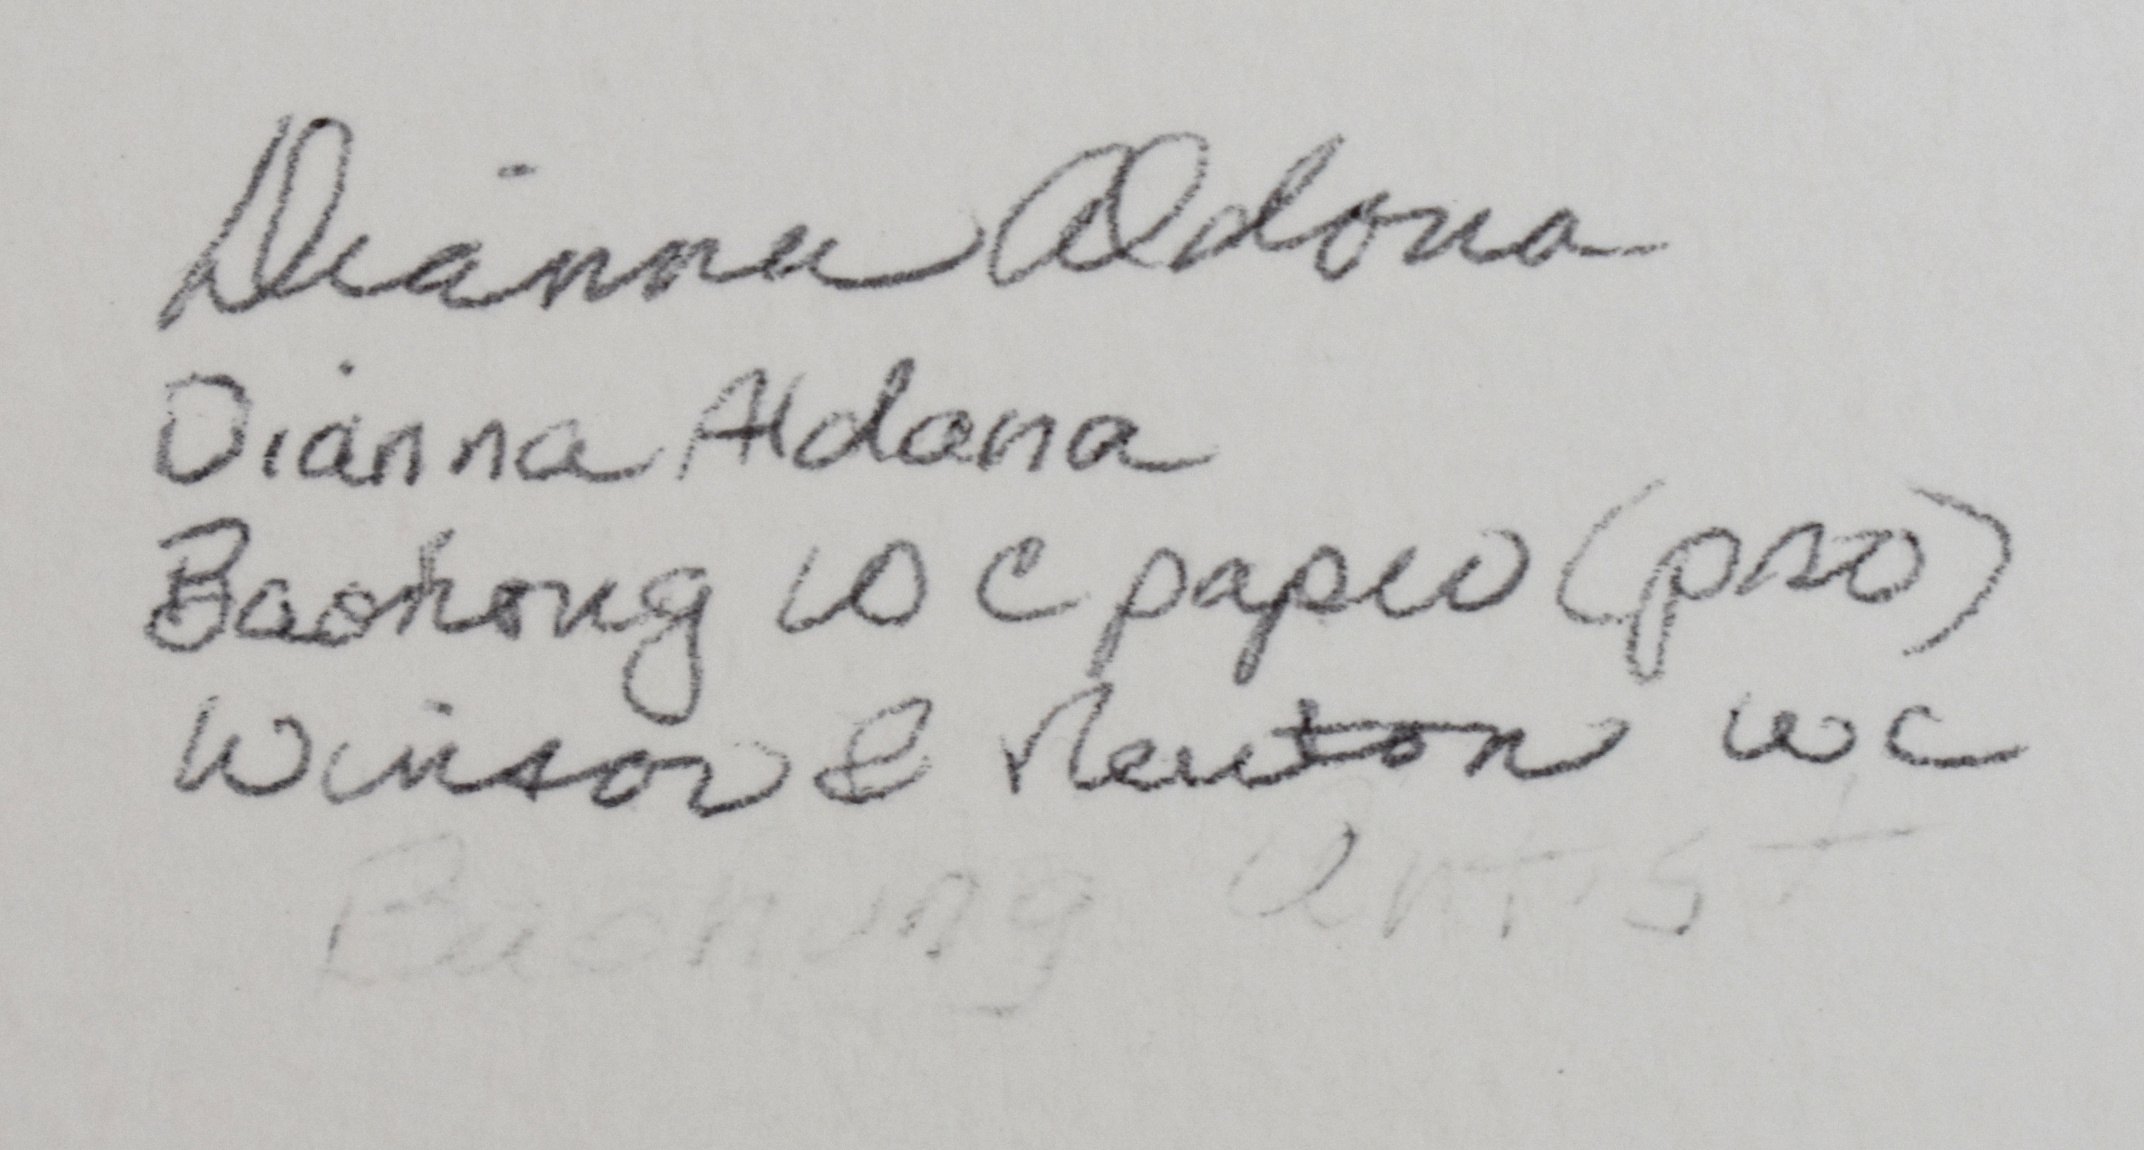 Dianna Aldana
Dianna Aldana
Baohong WC paper (pro)
Winsor & Newton WC
Baohong Artist